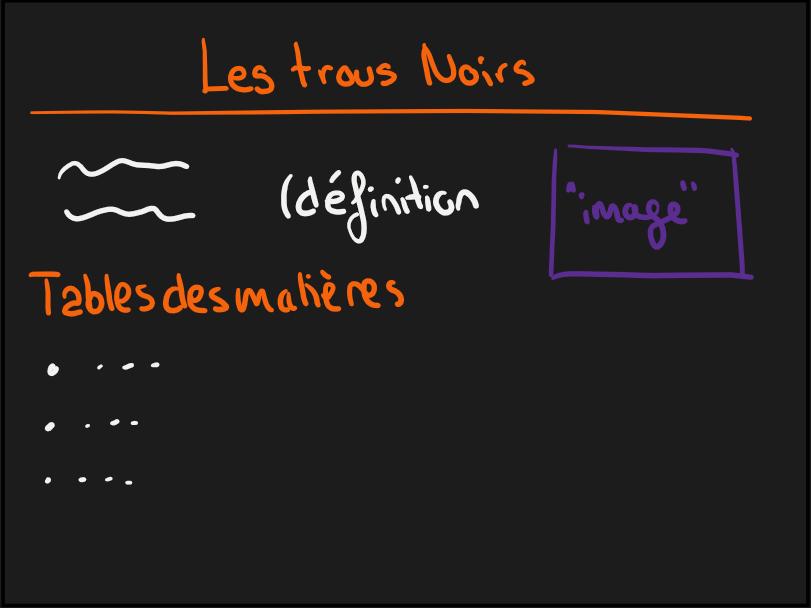 Les trous Noirs
(définition
"image"
Tables des matières